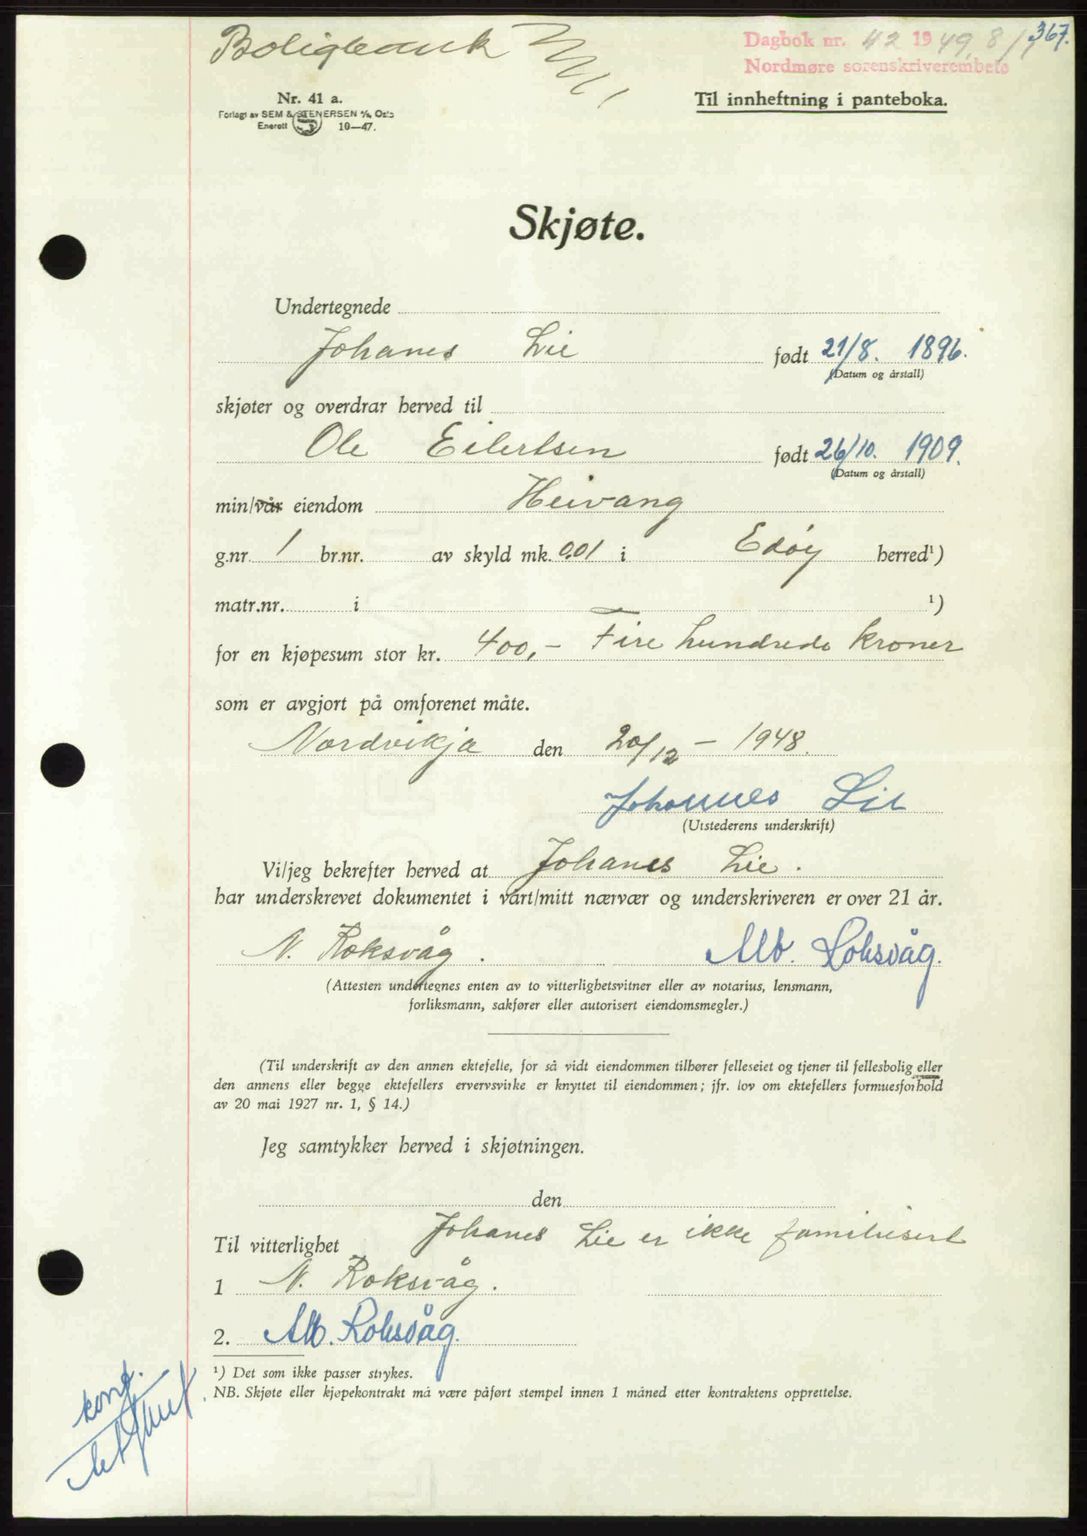 Boligbank
Dagbok nr. 42 1949, 8/1 367.
Nordmøre sorenskriverembete
Nr. 41 a.
Forlagt av SEM & STENERSEN A/S, Oslo
Enerett 10—47.
Til innheftning i panteboka.
Skjøte.
Undertegnede
Johanes Lie født 21/8. 1896.
(Datum og årstall)
skjøter og overdrar herved til
Ole Eilertsen født 26/10. 1909.
(Datum og årstall)
min/vår eiendom Heivang
g.nr. 1 br.nr. av skyld mk. 0.01 i Edøy herred¹)
matr.nr. i ¹)
for en kjøpesum stor kr. 400,- Fire hundrede kroner
som er avgjort på omforenet måte.
Nordvikja den 20/12 - 1948.
Johannes Lie
(Utstederens underskrift)
Vi/jeg bekrefter herved at Johanes Lie.
har underskrevet dokumentet i vårt/mitt nærvær og underskriveren er over 21 år.
N. Roksvåg. Alb. Roksvåg.
(Attesten undertegnes enten av to vitterlighetsvitner eller av notarius, lensmann,
forliksmann, sakfører eller autorisert eiendomsmegler.)
(Til underskrift av den annen ektefelle, for så vidt eiendommen tilhører felleseiet og tjener til fellesbolig eller
den annens eller begge ektefellers ervervsvirke er knyttet til eiendommen; jfr. lov om ektefellers formuesforhold
av 20 mai 1927 nr. 1, § 14.)
Jeg samtykker herved i skjøtningen.
den
Til vitterlighet Johanes Lie er ikke familiisert
1 N. Roksvåg.
2. Alb. Roksvåg.
¹) Det som ikke passer strykes.
NB. Skjøte eller kjøpekontrakt må være påført stempel innen 1 måned etter kontraktens opprettelse.
konf.